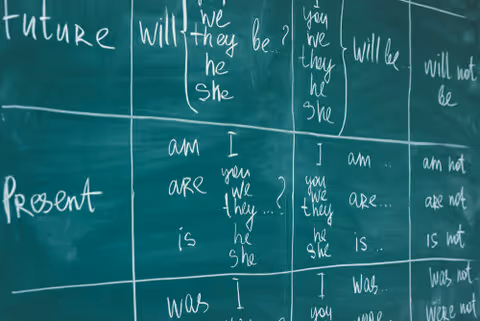 Future
will
we
they be..?
he
she
I
you
we
they
he
she
will be
will not
be
Present
am I
are you
we
they...?
is he
she
I am..
you
we are...
they
he is..
she
am not
are not
is not
was I
I was..
you
was not
were not